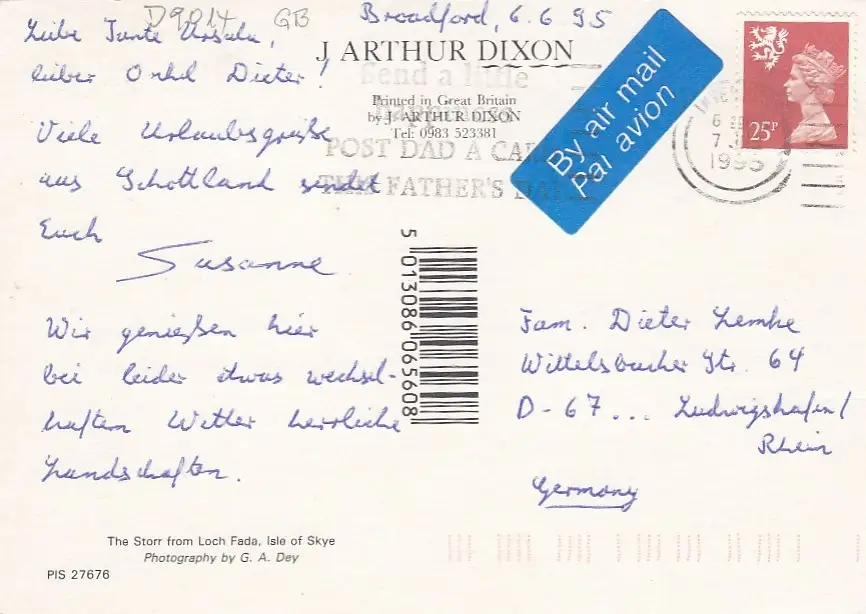 D9014 GB
Broadford, 6.6.95
Liebe Tante Ursula,
lieber Onkel Dieter!
Viele Urlaubsgrüße
aus Schottland sendet
Euch
Susanne
Wir genießen hier
bei leider etwas wechsel-
haftem Wetter herrliche
Landschaften.
J ARTHUR DIXON
Printed in Great Britain
by J. ARTHUR DIXON
Tel: 0983 523381
Send a little
POST DAD A
THIS FATHER'S
By air mail
Par avion
25P
1995
5 013086 065608
Fam. Dieter Lemke
Wittelsbacher Str. 64
D-67... Ludwigshafen/
Rhein
Germany
The Storr from Loch Fada, Isle of Skye
Photography by G. A. Dey
PIS 27676